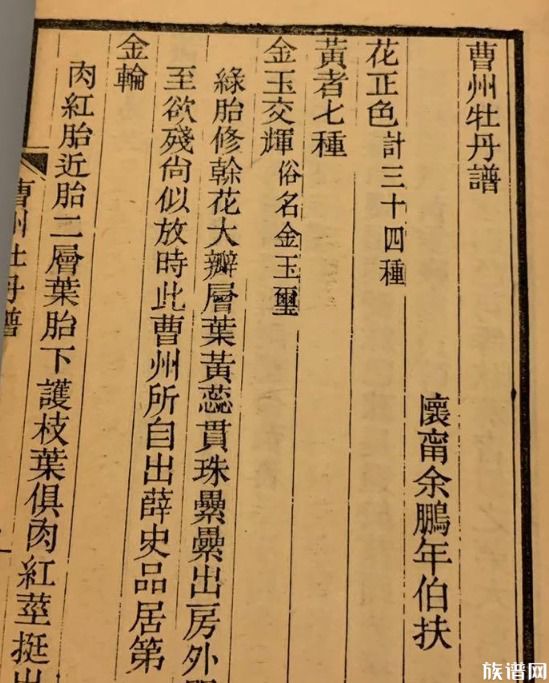 曹州牡丹譜
懷甯余鵬年伯扶
花正色 計三十四種
黃者七種
金玉交輝 俗名金玉璽
綠胎修幹花大瓣層葉黃蕊貫珠纍纍出房外
至欲殘尙似放時此曹州所自出薛史品居第
金輪
肉紅胎近胎二層葉胎下護枝葉俱肉紅莖挺出
曹州牡丹譜
族谱网